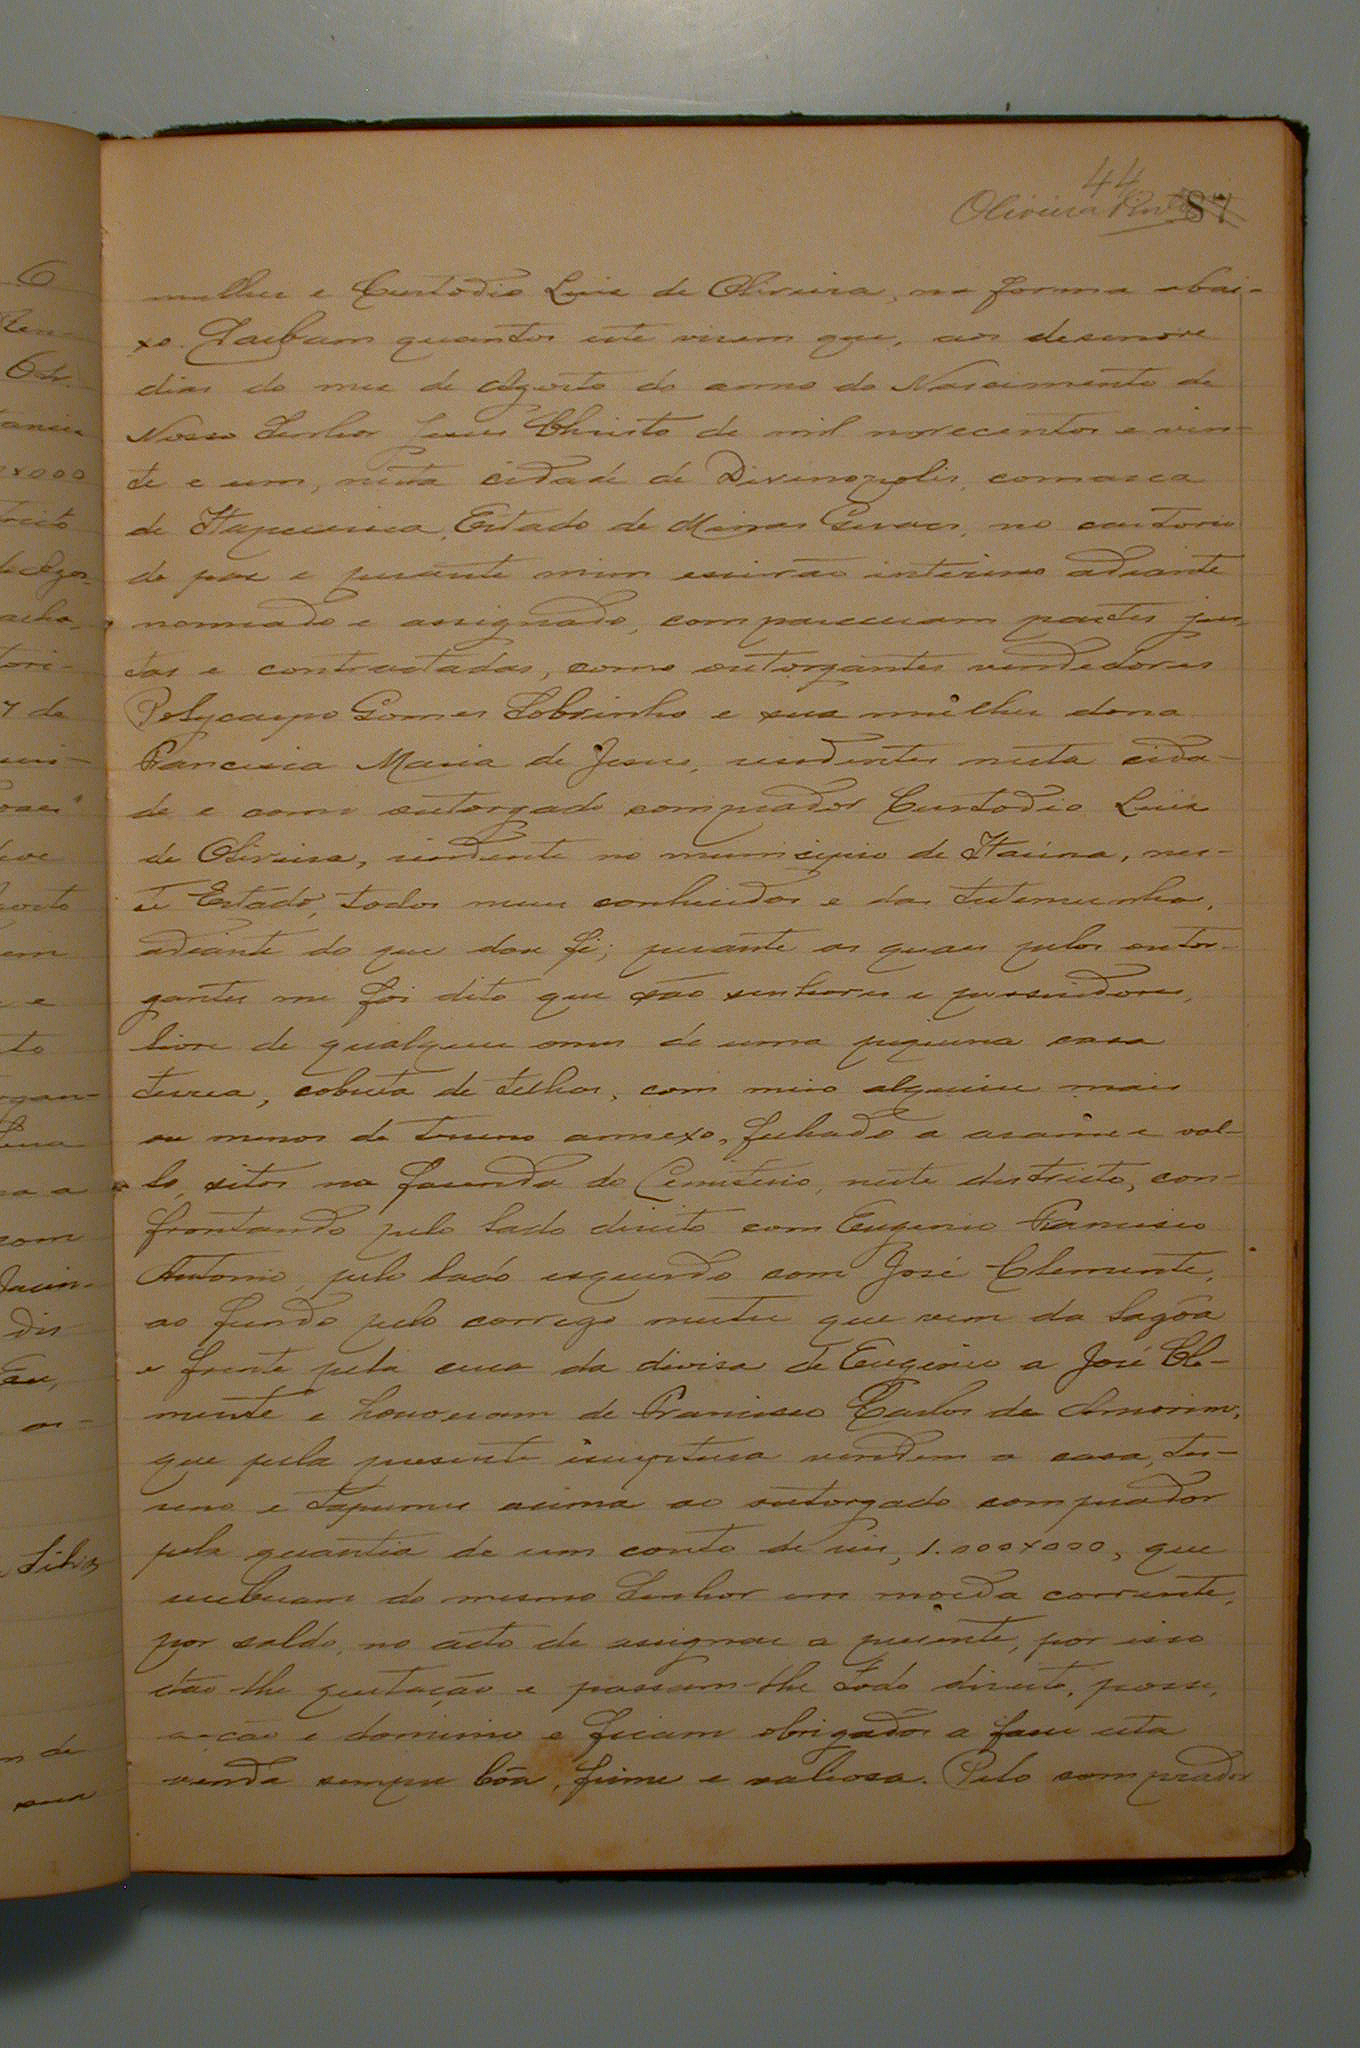 44
Oliveira Pinto 87
mulher e Custodio Luiz de Oliveira, na forma abai-
xo. Saibam quantos este virem que, aos desenove
dias do mez de Agosto do anno do Nascimento de
Nosso Senhor Jesus Christo de mil novecentos e vin-
te e um, nesta cidade de Divinopolis, comarca
de Itapecerica, Estado de Minas Geraes, no cartorio
de paz e perante mim escrivão interino adiante
nomeado e assignado, compareceram partes jus-
tas e contractadas, como outorgantes vendedores
Polycarpo Gomes Sobrinho e sua mulher dona
Francisca Maria de Jesus, residentes nesta cida-
de e como outorgado comprador Custodio Luiz
de Oliveira, residente no municipio de Itaúna, nes-
te Estado, todos meus conhecidos e das testemunhas,
adiante do que dou fé; perante as quaes pelos outor-
gantes me foi dito que são senhores e possuidores,
livre de qualquer onus de uma pequena casa
terrea, coberta de telhas, com meio alqueire mais
ou menos de terreno annexo, fechado a arame e val-
lo, sitos na fazenda do Cemiterio, neste districto, con-
frontando pelo lado direito com Eugenio Francisco
Antonio, pelo lado esquerdo com José Clemente,
ao fundo pelo corrego mestre que vem da lagôa
e frente pela cerca da divisa de Eugenio a José Cle-
mente e houveram de Francisco Carlos de Amorim,
que pela presente escriptura vendem a casa, ter-
reno e tapumes acima ao outorgado comprador
pela quantia de um conto de reis, 1.000x000, que
receberam do mesmo Senhor em moeda corrente,
por saldo, no acto de assignar a presente, por isso
dão-lhe quitação e passam-lhe todo direito, posse,
acção e dominio e ficam obrigados a fazer esta
venda sempre bôa, firme e valiosa. Pelo comprador